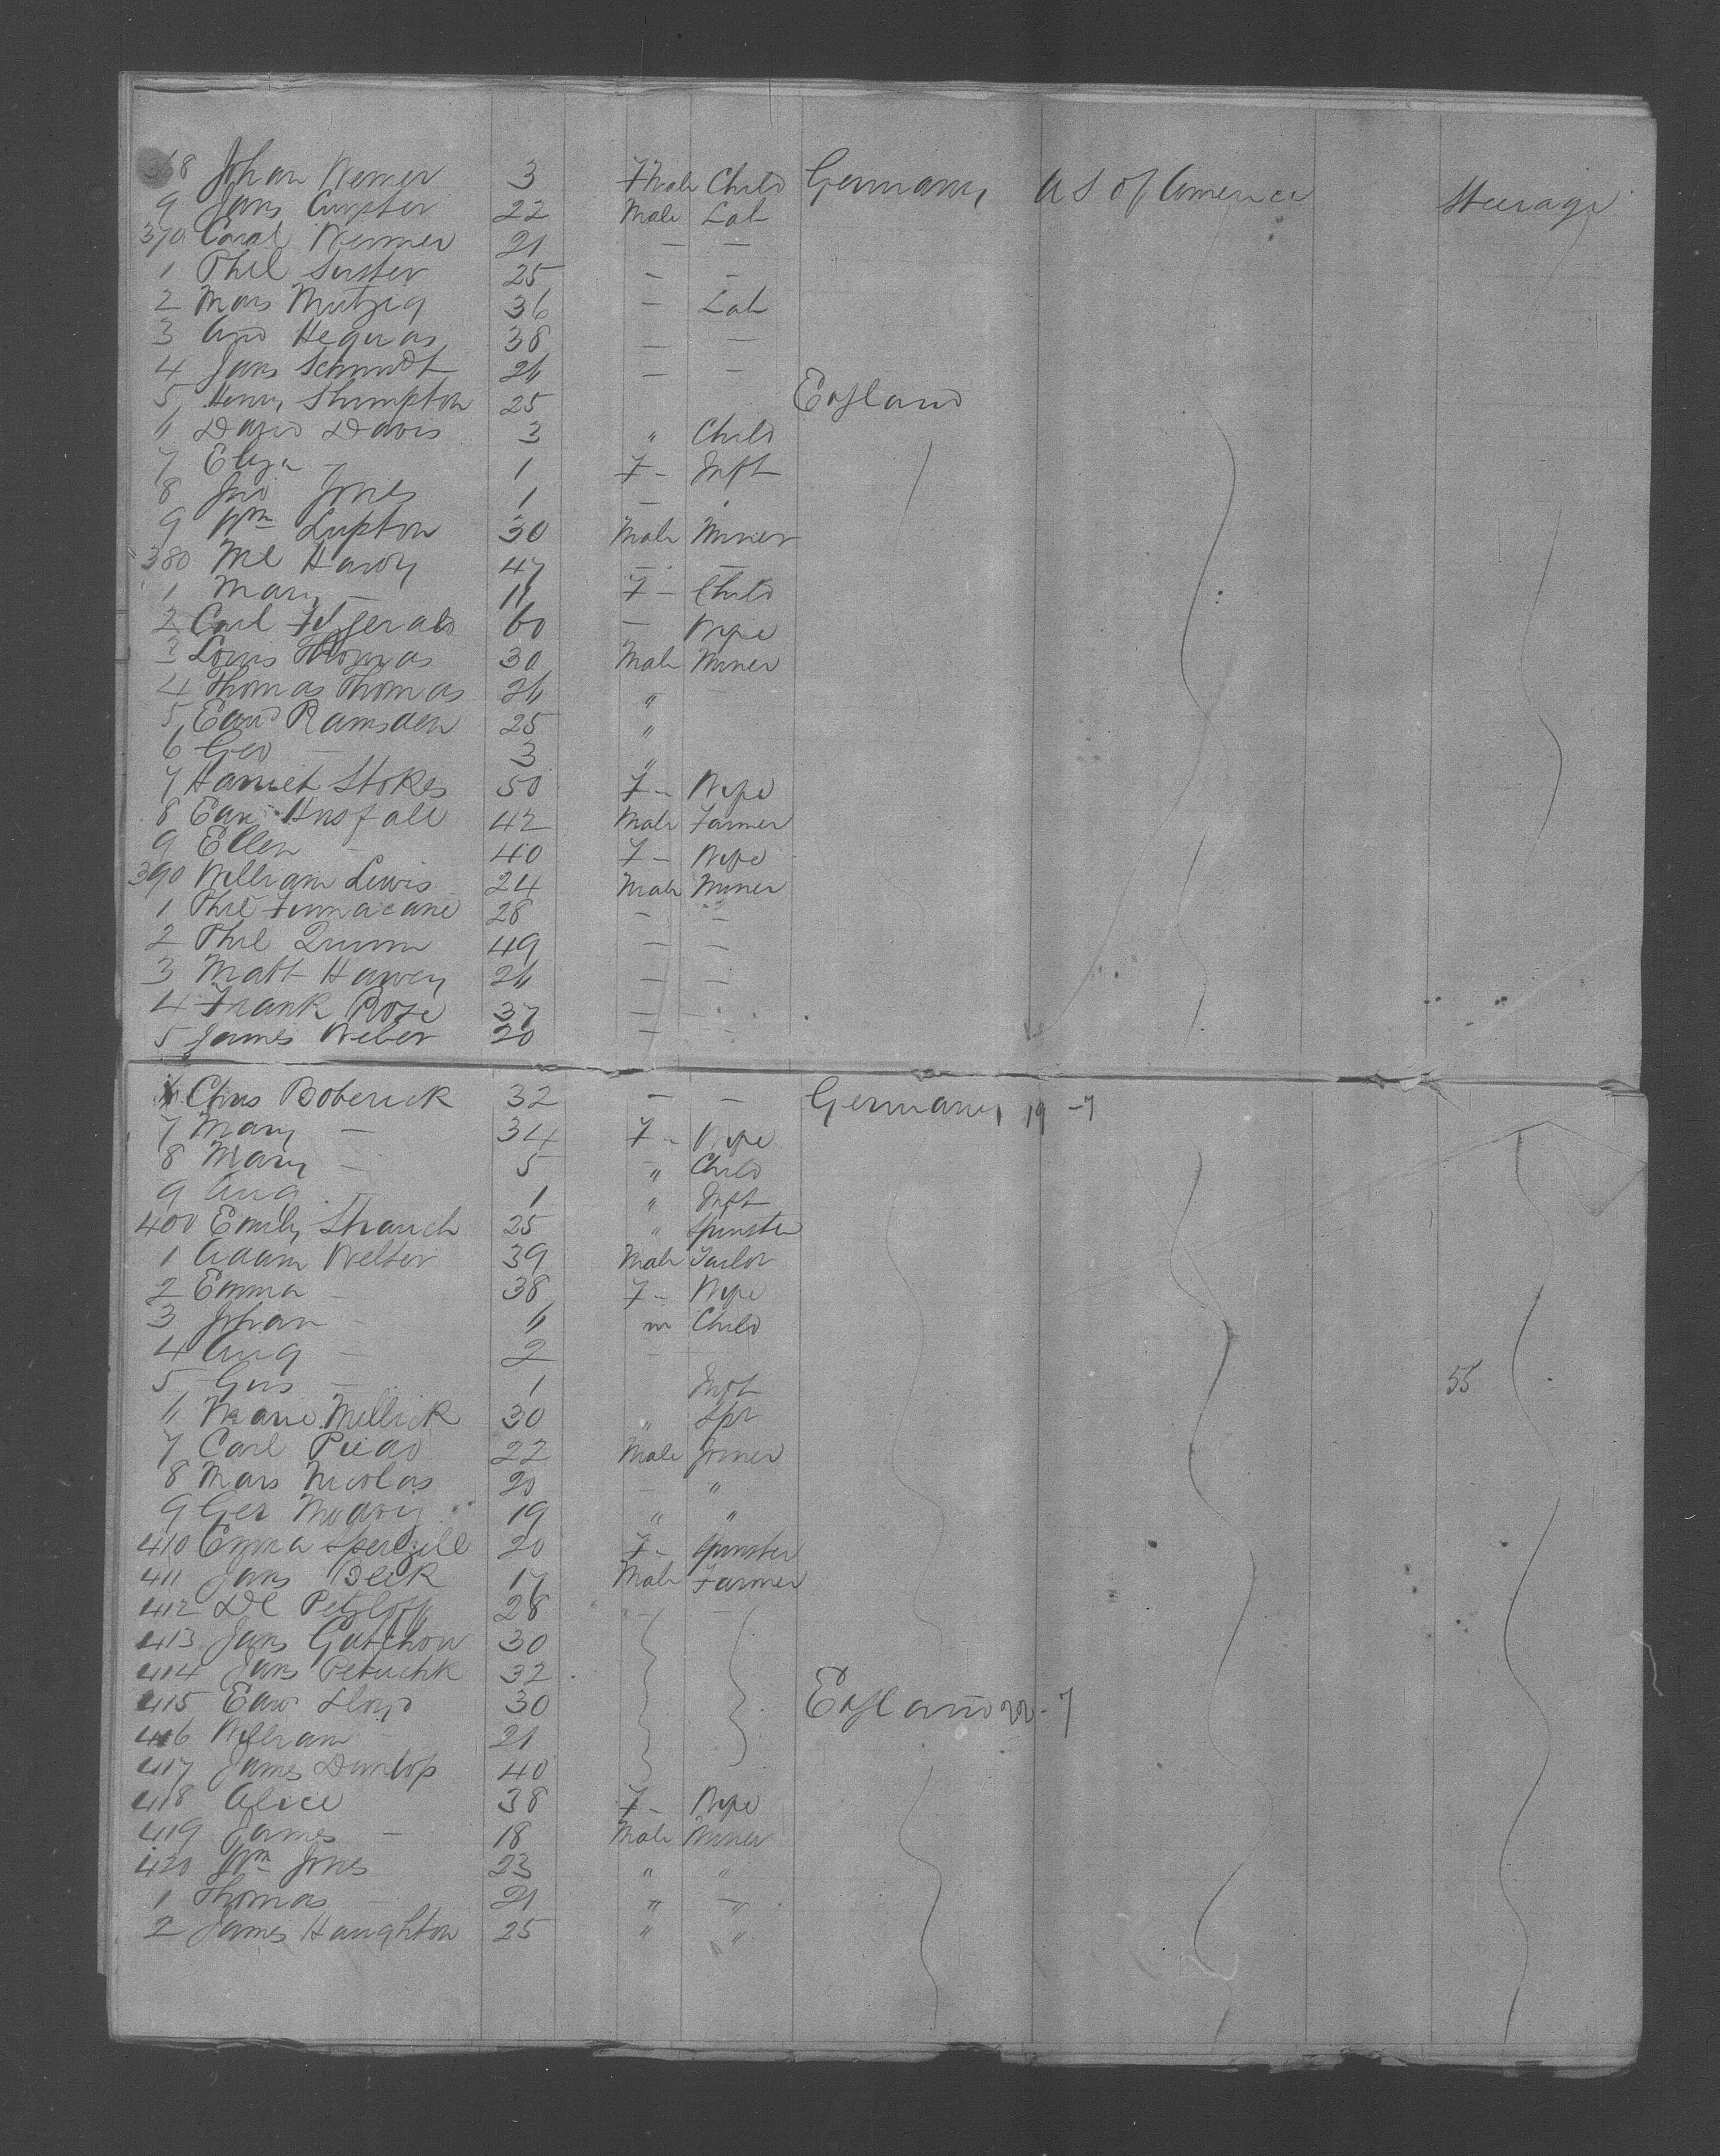 368 Johan Werner 3 Fmale Child Germany US of America Steerage
9 Jans 22 Male Lab
370 Caral Werner 21 — —
1 Phil Suster 25 — —
2 Mars Mutzig 36 — Lab
3 And Heguas 38 — —
4 Jans Schmidt 26 — —
5 Henry Shimpton 25 England
6 David Davis 3 " Child
7 Eliza — 1 F — Inft
8 Jno Jones 1 —
9 Wm Lupton 30 Male Miner
380 Ml Hardy 47 — —
1 Mary — 11 F — Child
2 Carl Fitzgerald 60 — Wife
3 Louis Thomas 30 Male Miner
4 Thomas Thomas 26 "
5 Edwd Ramsden 25 "
6 Geo — 3 "
7 Harriet Stokes 50 F — Wife
8 Edw Hnsfall 42 Male Farmer
9 Ellen — 40 F — Wife
390 William Lewis 24 Male Miner
1 Phil Finnacane 28 — —
2 Phil Quinn 49 — —
3 Matt Harvey 26 — —
4 Frank Rose 37 —
5 James Weber 20 — —
6 Chas Boberick 32 — — Germany 19 - 7
7 Mary — 34 F — Wife
8 Mary — 5 " Child
9 Aug 1 " Inft
400 Emily Strauch 25 " Spinster
1 Adam Welter 39 Male Tailor
2 Emma — 38 F — Wife
3 Johan — 6 m Child
4 Aug — 2
5 Gus — 1 Inft 55
6 Marie Mellick 30 " Spr
7 Carl 22 Male Joiner
8 Mars Nicolas 20 — "
9 Ger 19 " "
410 Emma 20 F — Spinster
411 Jans Beck 17 Male Farmer
412 Dl Petzloff 28 — —
413 Jans Gutchow 30
414 Jans Petuchk 32
415 Edw Lloyd 30 England 22 - 7
416 William — 21
417 James Dunlop 40
418 Alice 38 F — Wife
419 James — 18 Male Miner
420 Wm Jones 23 " "
1 Thomas — 21 " "
2 James Haughton 25 " "